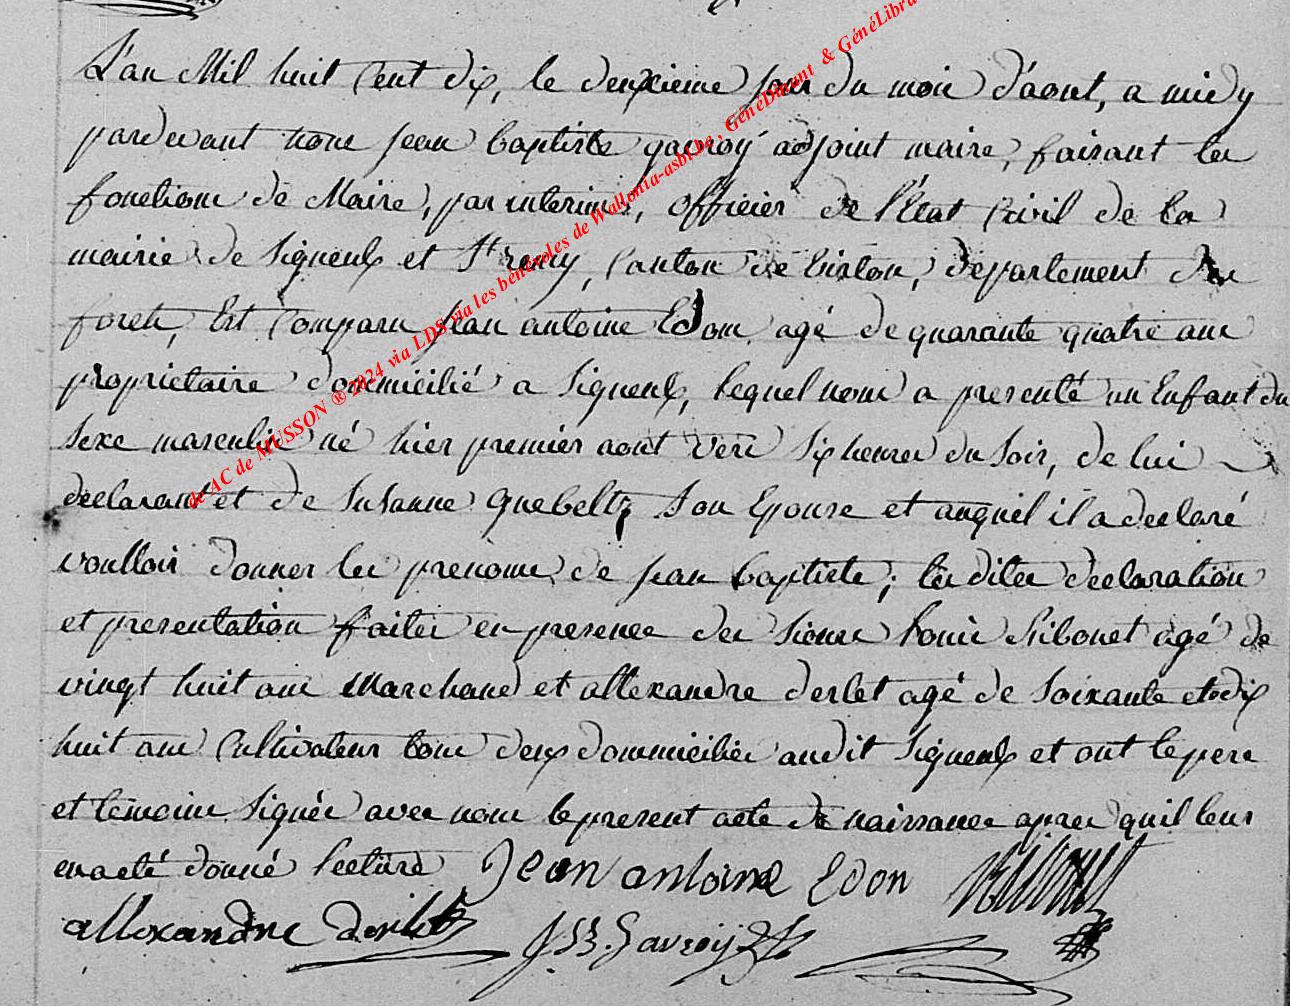 L'an Mil huit Cent dix, le deuxieme jour du mois d'aout, a midy
pardevant nous jean baptiste gavroÿ adjoint maire, faisant les
fonctions de Maire, par interim, officier de l'Etat Civil de la
mairie de Signeulx et St remy, Canton de Virton, departement des
forets, Est Comparu jean antoine Edon, agé de quarante quatre ans
proprietaire domicilié a Signeulx, lequel nous a presenté un Enfant du
sexe masculin né hier premier aout vers six heures du soir, de lui
declarant et de Susanne Guebeltz son Epouse et auquel il a declaré
voulloir donner les prenoms de jean baptiste; les dites declaration
et presentation faites en presence des sieurs Louis Ribonet agé de
vingt huit ans Marchand et allexandre derlet agé de soixante et dix
huit ans Cultivateur tous deux dommiciliés audit Signeulx et ont le pere
et temoins signés avec nous le present acte de naissance apres qu'il leur
en a eté donné lecture Jean antoine Edon
allexandre derlet JB. Gavroÿ
de AC de MUSSON ® 2024 via LDS via les bénévoles de Wallonia-asbl.be, GénéDinant & GénéLibra